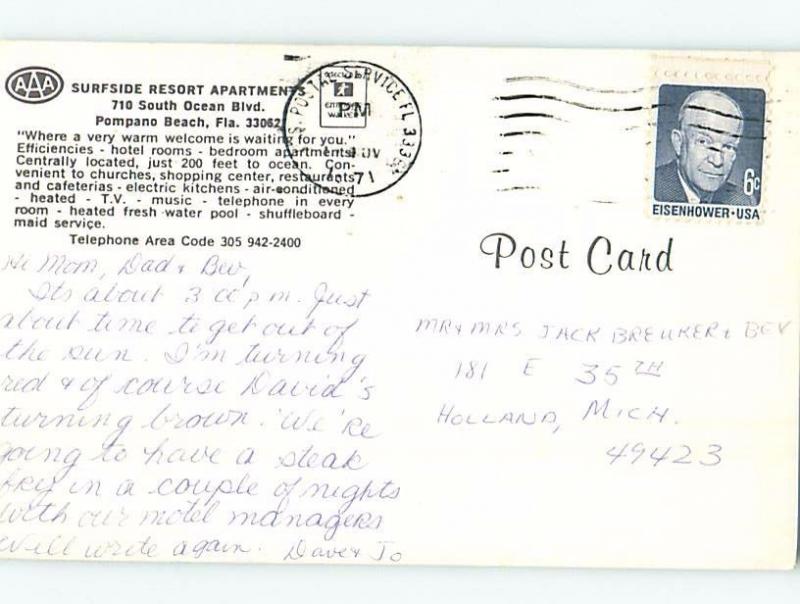 AAA
SURFSIDE RESORT APARTMENTS
710 South Ocean Blvd.
Pompano Beach, Fla. 33062
"Where a very warm welcome is waiting for you."
Efficiencies - hotel rooms - bedroom apartments!
Centrally located, just 200 feet to ocean. Con-
venient to churches, shopping center, restaurants
and cafeterias - electric kitchens - air-conditioned
- heated - T.V. - music - telephone in every
room - heated fresh water pool - shuffleboard -
maid service.
Telephone Area Code 305 942-2400
U.S. POSTAL SERVICE FL 333
PM
NOV
1971
6c
EISENHOWER·USA
Post Card
Hi Mom, Dad & Bev,
Its about 3:00 p.m. Just
about time to get out of
the sun. I'm turning
red & of course David's
turning brown. We're
going to have a steak
fry in a couple of nights
with our motel managers
Will write again. Dave & Jo
MR & MRS JACK BREUKER & BEV
181 E 35TH
HOLLAND, MICH.
49423